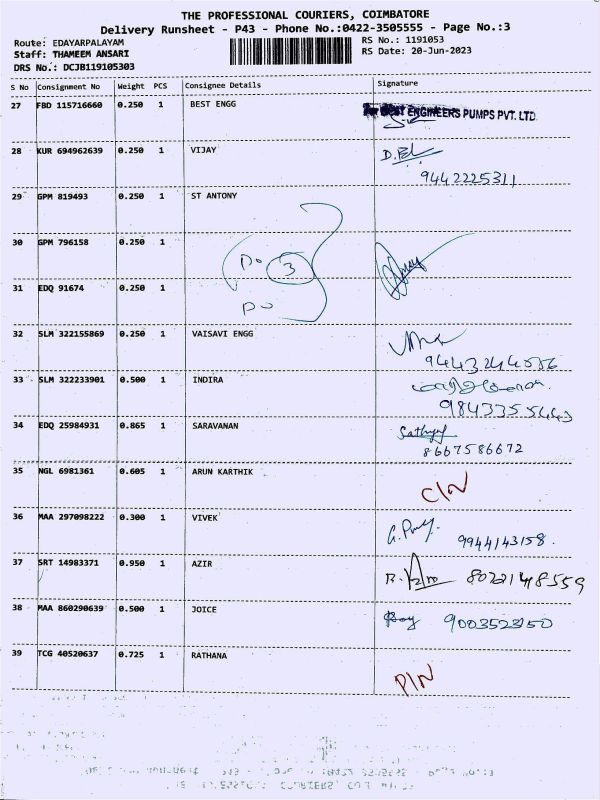 THE PROFESSIONAL COURIERS, COIMBATORE
Delivery Runsheet - P43 - Phone No.:0422-3505555 - Page No.:3
Route: EDAYARPALAYAM
RS No.: 1191053
Staff: THAMEEM ANSARI
RS Date: 20-Jun-2023
DRS No.: DCJB119105303
S No Consignment No Weight PCS Consignee Details Signature
27 FBD 115716660 0.250 1 BEST ENGG
For BEST ENGINEERS PUMPS PVT. LTD
28 KUR 694962639 0.250 1 VIJAY
9442225311
29 GPM 819493 0.250 1 ST ANTONY
30 GPM 796158 0.250 1
Do 3
31 EDQ 91674 0.250 1
Do
32 SLM 322155869 0.250 1 VAISAVI ENGG
9443244556
33 SLM 322233901 0.500 1 INDIRA
9843355443
34 EDQ 25984931 0.865 1 SARAVANAN
8667586672
35 NGL 6981361 0.605 1 ARUN KARTHIK
C/N
36 MAA 297098222 0.300 1 VIVEK
9944143158.
37 SRT 14983371 0.950 1 AZIR
8022148559
38 MAA 860290639 0.500 1 JOICE
9003523150
39 TCG 40520637 0.725 1 RATHANA
P/N